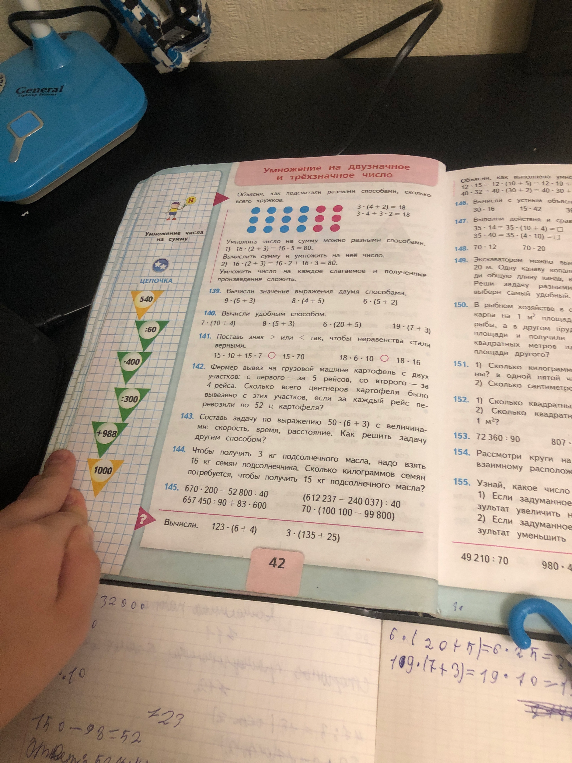 General
Умножение на двузначное
и трёхзначное число
Умножение числа
на сумму
ЦЕПОЧКА
540
:60
·400
:300
+988
1000
Объясни, как подсчитали разными способами, сколько
всего кружков.
3·(4 + 2) = 18
3·4 + 3·2 = 18
Умножить число на сумму можно разными способами.
1) 16·(2 + 3) = 16·5 = 80.
Вычислить сумму и умножить на неё число.
2) 16·(2 + 3) = 16·2 + 16·3 = 80.
Умножить число на каждое слагаемое и полученные
произведения сложить.
139. Вычисли значение выражения двумя способами.
9·(5 + 3) 8·(4 + 5) 6·(5 + 2)
140. Вычисли удобным способом.
7·(10 + 4) 8·(5 + 3) 6·(20 + 5) 19·(7 + 3)
141. Поставь знак > или < так, чтобы неравенства стали
верными.
15·10 + 15·7 ○ 15·70 18·6·10 ○ 18·16
142. Фермер вывез на грузовой машине картофель с двух
участков: с первого — за 5 рейсов, со второго — за
4 рейса. Сколько всего центнеров картофеля было
вывезено с этих участков, если за каждый рейс пе-
ревозили по 52 ц картофеля?
143. Составь задачу по выражению 50·(6 + 3) с величина-
ми: скорость, время, расстояние. Как решить задачу
другим способом?
144. Чтобы получить 3 кг подсолнечного масла, надо взять
16 кг семян подсолнечника. Сколько килограммов семян
потребуется, чтобы получить 15 кг подсолнечного масла?
145. 670·200 52 800 : 40 (612 237 − 240 037) : 40
657 450 : 90 83·600 70·(100 100 − 99 800)
?
Вычисли. 123·(6 + 4) 3·(135 + 25)
42
146.
30·16 15·42
147. Выполни действия и срав
35·14 = 35·(10 + 4) = □
35·40 = 35·(4·10) = □
148. 70·12 70·20
149. Экскаватором
20 м. Одну канаву
ди общую длину канав,
Реши задачу разными
выбери самый удобный.
150. В рыбном хозяйстве в
карпа на 1 м² площад
рыбы, а в другом пруду
площади и получили
квадратных метров
площади другого?
151. 1) Сколько килограммо
ни? в одной пятой ч
2) Сколько сантиметро
152. 1) Сколько квадратны
2) Сколько квадратн
1 м²?
153. 72 360 : 90 807
154. Рассмотри круги на
взаимному располож
155. Узнай, какое число
1) Если задуманное
зультат увеличить н
2) Если задуманное
зультат уменьшить
49 210 : 70 980·4
32800
·10
723
150−98=52
6·(20+5)=6·25=
19·(7+3)=19·10=1